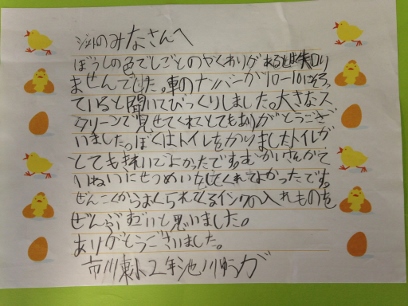 ジバのみなさんへ
ぼうしの色でしごとのやくわりがあるとは知り
ませんでした。車のナンバーが10-10にそろっ
ていると聞いてびっくりしました。大きなス
クリーンで見せてくれてとてもありがとうござ
いました。ぼくはトイレをかりましたトイレが
とても
よかったです
ていねいにせつめいをしてくれてよかったです
ぜんこくからおくられてくるインクの入れものを
ぜんぶ
と思いました。
ありがとうございました。
市川東小2年